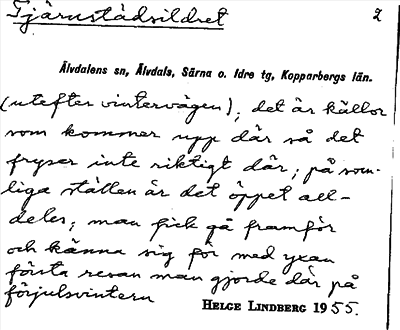 Tjärnstådsildret 2
Älvdalens sn, Älvdals, Särna o. Idre tg, Kopparbergs län.
(utefter vintervägen); det är källor
som kommer upp där så det
fryser inte riktigt där; på som-
liga ställen är det öppet all-
deles; man fick gå framför
och känna sig för med yxan
första resan man gjorde där på
förjulsvintern
HELGE LINDBERG 1955.